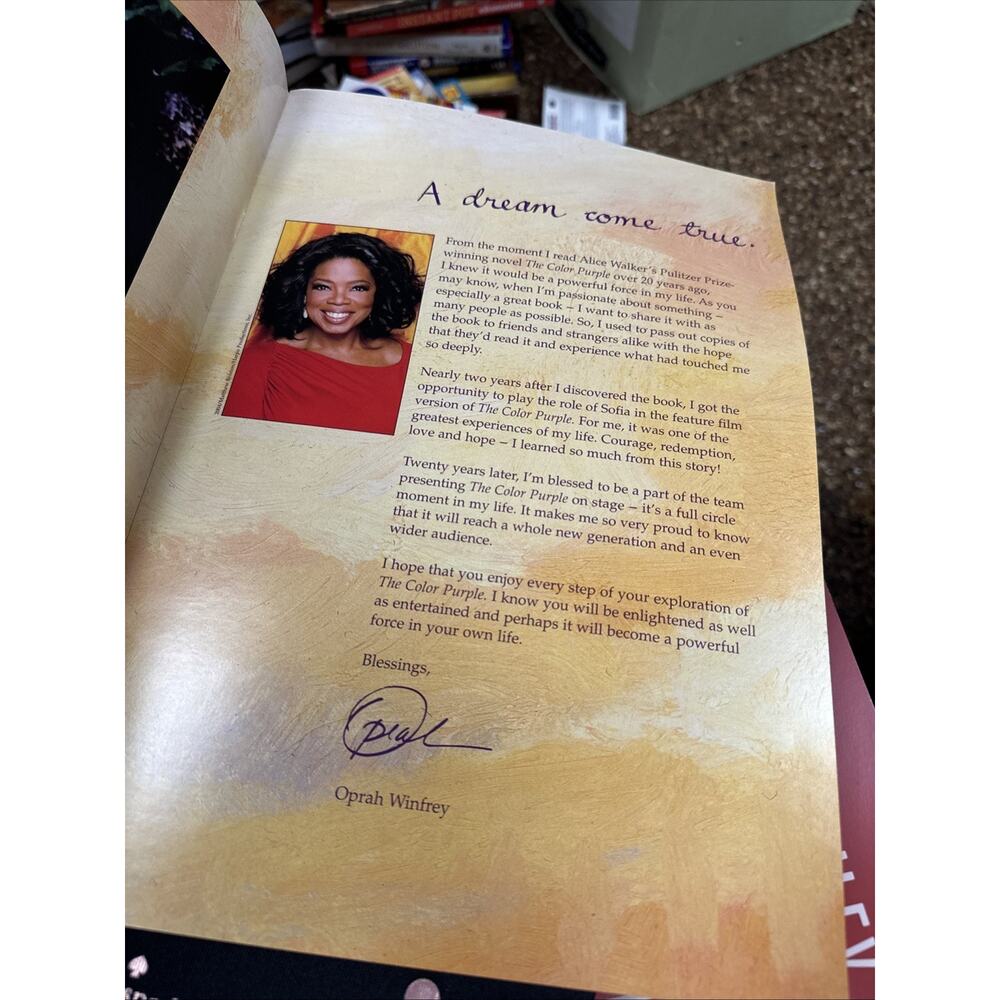 A dream come true.
From the moment I read Alice Walker's Pulitzer Prize-
winning novel The Color Purple over 20 years ago,
I knew it would be a powerful force in my life. As you
may know, when I'm passionate about something –
especially a great book – I want to share it with as
many people as possible. So, I used to pass out copies of
the book to friends and strangers alike with the hope
that they'd read it and experience what had touched me
so deeply.
Nearly two years after I discovered the book, I got the
opportunity to play the role of Sofia in the feature film
version of The Color Purple. For me, it was one of the
greatest experiences of my life. Courage, redemption,
love and hope – I learned so much from this story!
Twenty years later, I'm blessed to be a part of the team
presenting The Color Purple on stage – it's a full circle
moment in my life. It makes me so very proud to know
that it will reach a whole new generation and an even
wider audience.
I hope that you enjoy every step of your exploration of
The Color Purple. I know you will be enlightened as well
as entertained and perhaps it will become a powerful
force in your own life.
Blessings,
Oprah
Oprah Winfrey